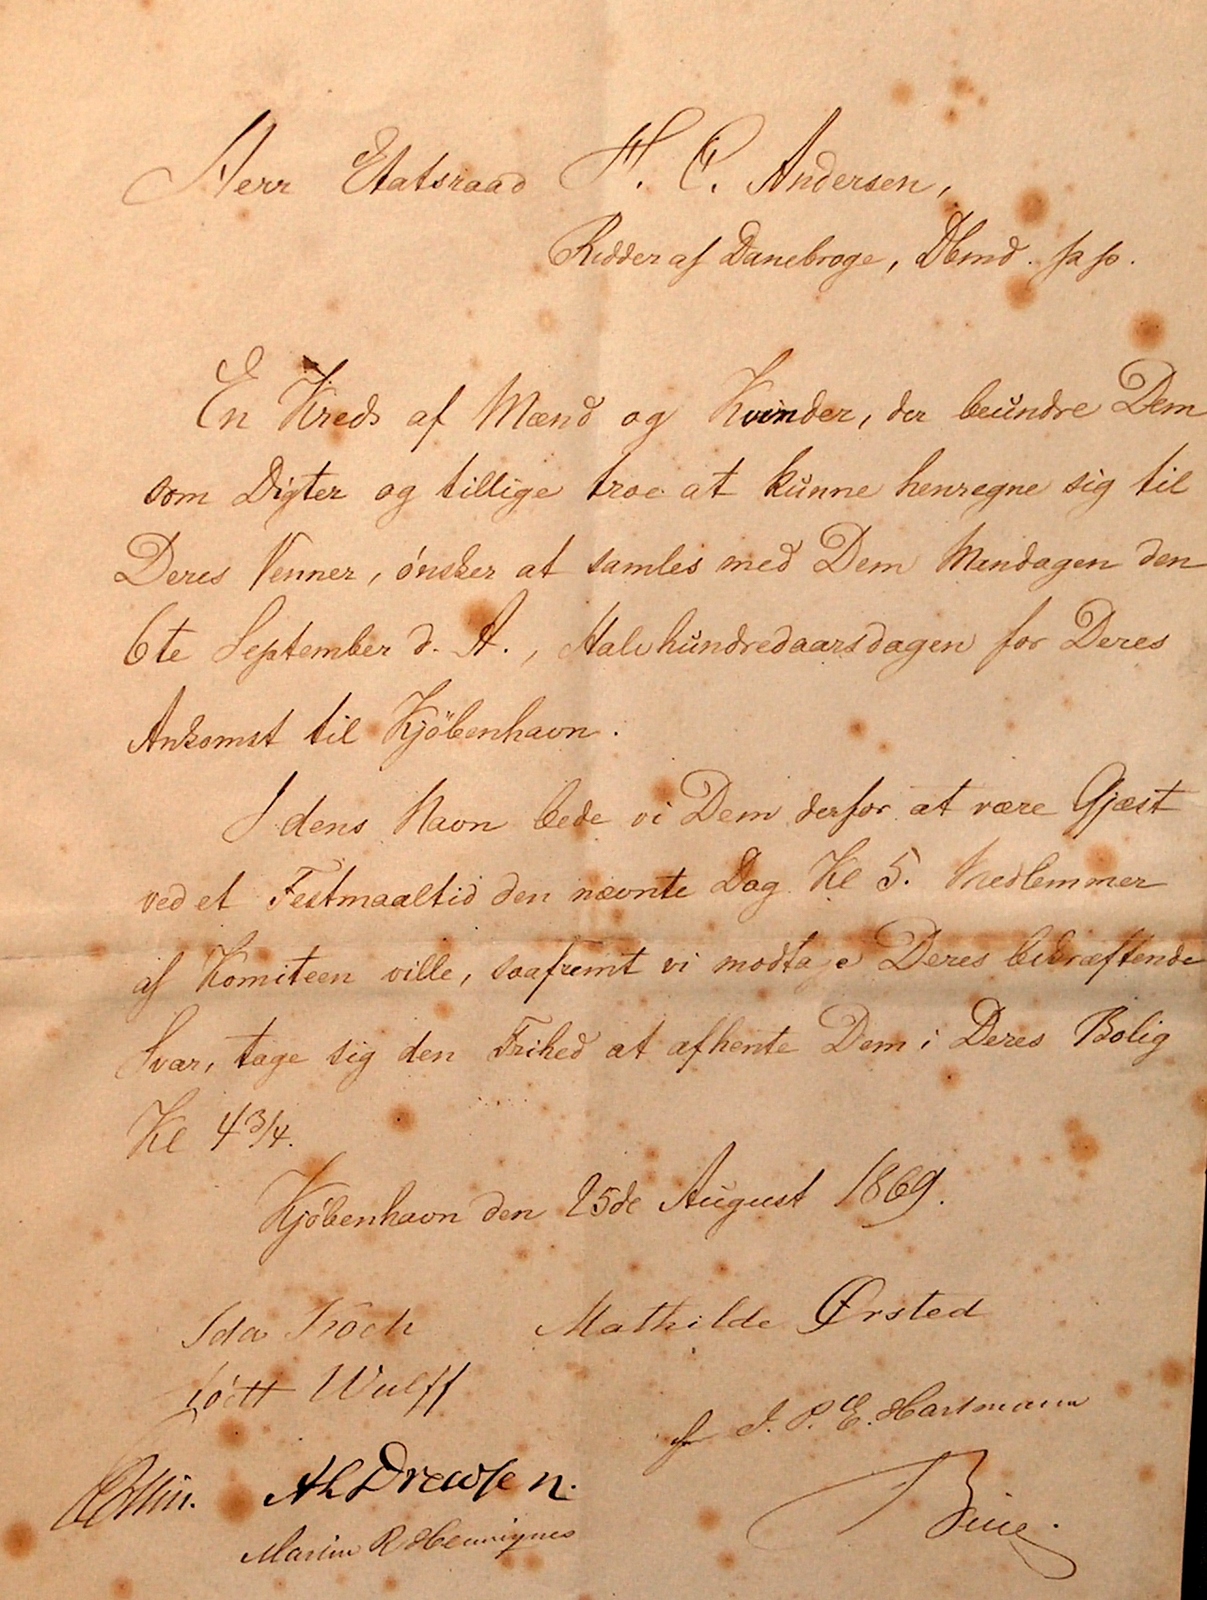 Herr Etatsraad H. C. Andersen,
Ridder af Danebroge, Dbmd. pp.
En Kreds af Mænd og Kvinder, der beundre Dem
som Digter og tillige troe at kunne henregne sig til
Deres Venner, ønsker at samles med Dem Mandagen den
6te September d. A., Halvhundredaarsdagen for Deres
Ankomst til Kjöbenhavn.
I dens Navn bede vi Dem derfor at være Gjæst
ved et Festmaaltid den nævnte Dag Kl 5. Medlemmer
af Komiteen ville, saafremt vi modtage Deres bekræftende
Svar, tage sig den Frihed at afhente Dem i Deres Bolig
Kl 4 3/4.
Kjøbenhavn den 25de August 1869.
Ida Koch Mathilde Ørsted
Wulff
J. P. E. Hartmann
Collin. Drewsen.
Martin R Henriques